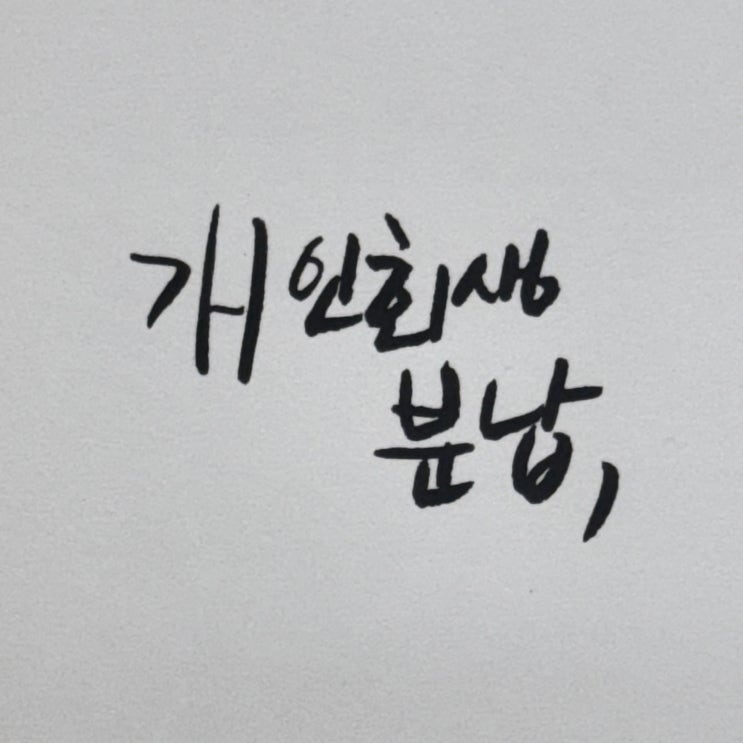 개인회생
분납,